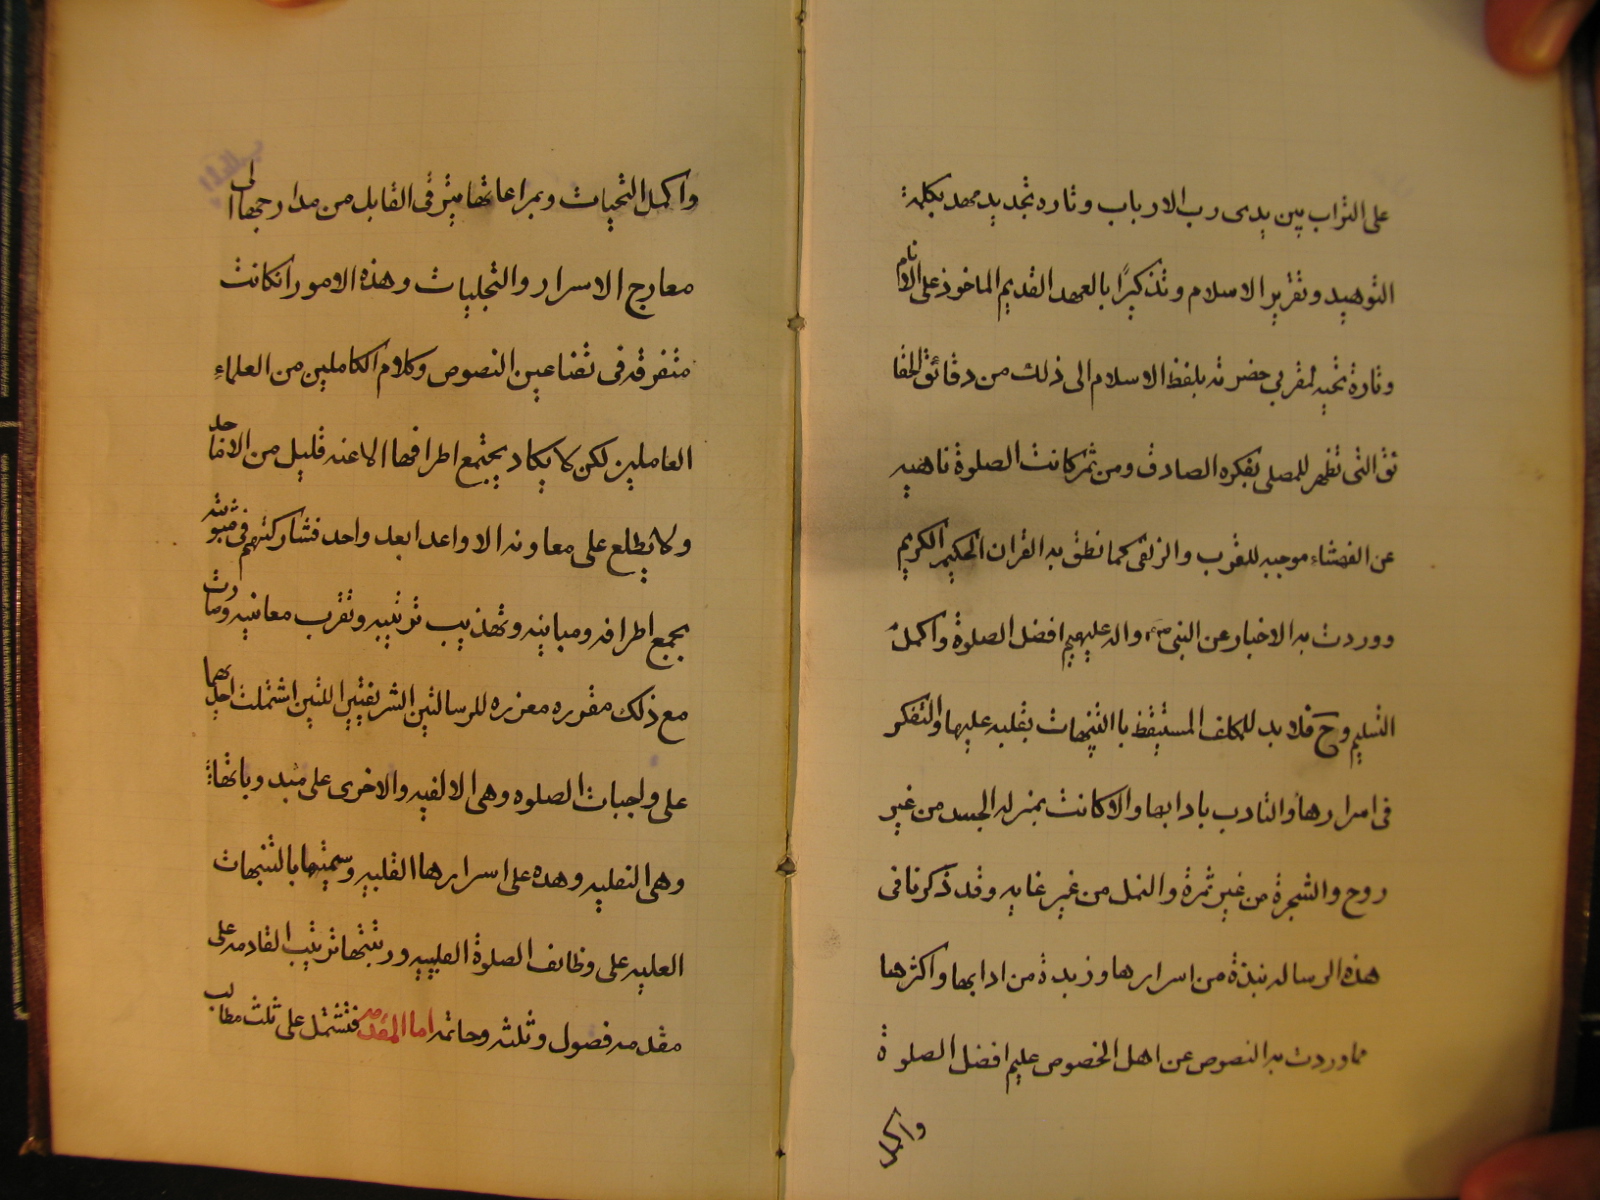 على التراب بين يدى رب الارباب وتاره تجديد عهد بكلمة
التوهيد وتقرير الاسلام وتذكيرًا بالعهد القديم الماخوذ على الانام
وتارة تحيه لمقربي حضرته بلفظ الاسلام الى ذلك من دقائق الحقا
ئق التى تظهر للمصلى بفكره الصادق ومن ثم كانت الصلوة ناهيه
عن الفحشاء موجبه للقرب والزلفى كما نطق به القران الحكيم الكريم
ووردت به الاخبار عن النبى ص واله عليهم افضل الصلوة واكمل
التسليم وح فلا بد للمكلف المستيقظ با التنبيهات بقلبه عليها والتفكر
فى اسرارها والتادب بادابها والا كانت بمنزله الجسد من غير
روح والشجرة من غير ثمرة والنمل من غير غايه وقد ذكرنا فى
هذه الرساله نبذة من اسرارها وزبدة من ادابها واكثرها
مما وردت به النصوص عن اهل الخصوص عليم افضل الصلوة
واكمل
واكمل التحيات وبمراعاتها يترقى القابل من مدارجها الى
معارج الاسرار والتجليات وهذه الامور انكانت
متفرقه فى تضاعين النصوص وكلام الكاملين من العلماء
العاملين لكن لا يكاد يجتمع اطرافها الا عند قليل من الاخاد
ولا يطلع على معاونه الا واعدا بعد واحد فشاركتهم فى مثوبته
بجمع اطرافه ومباينه وتهذيب ترتيبه وتقرب معانيه وصارت
مع ذلك مقوره معززه للرسالتين الشريفتين اللتين اشتملت احديهما
على واجبات الصلوه وهى الالفيه والاخرى على مندوباتها
وهى النفليه وهذه على اسرارها القلبيه وسميتها بالتنبيهات
العليه على وظائف الصلوة القلبيه ورتبتها ترتيب القادمه على
مقدمه فصول وثلثه وخاتمه اما المقدمه فتشتمل على ثلث مطالب